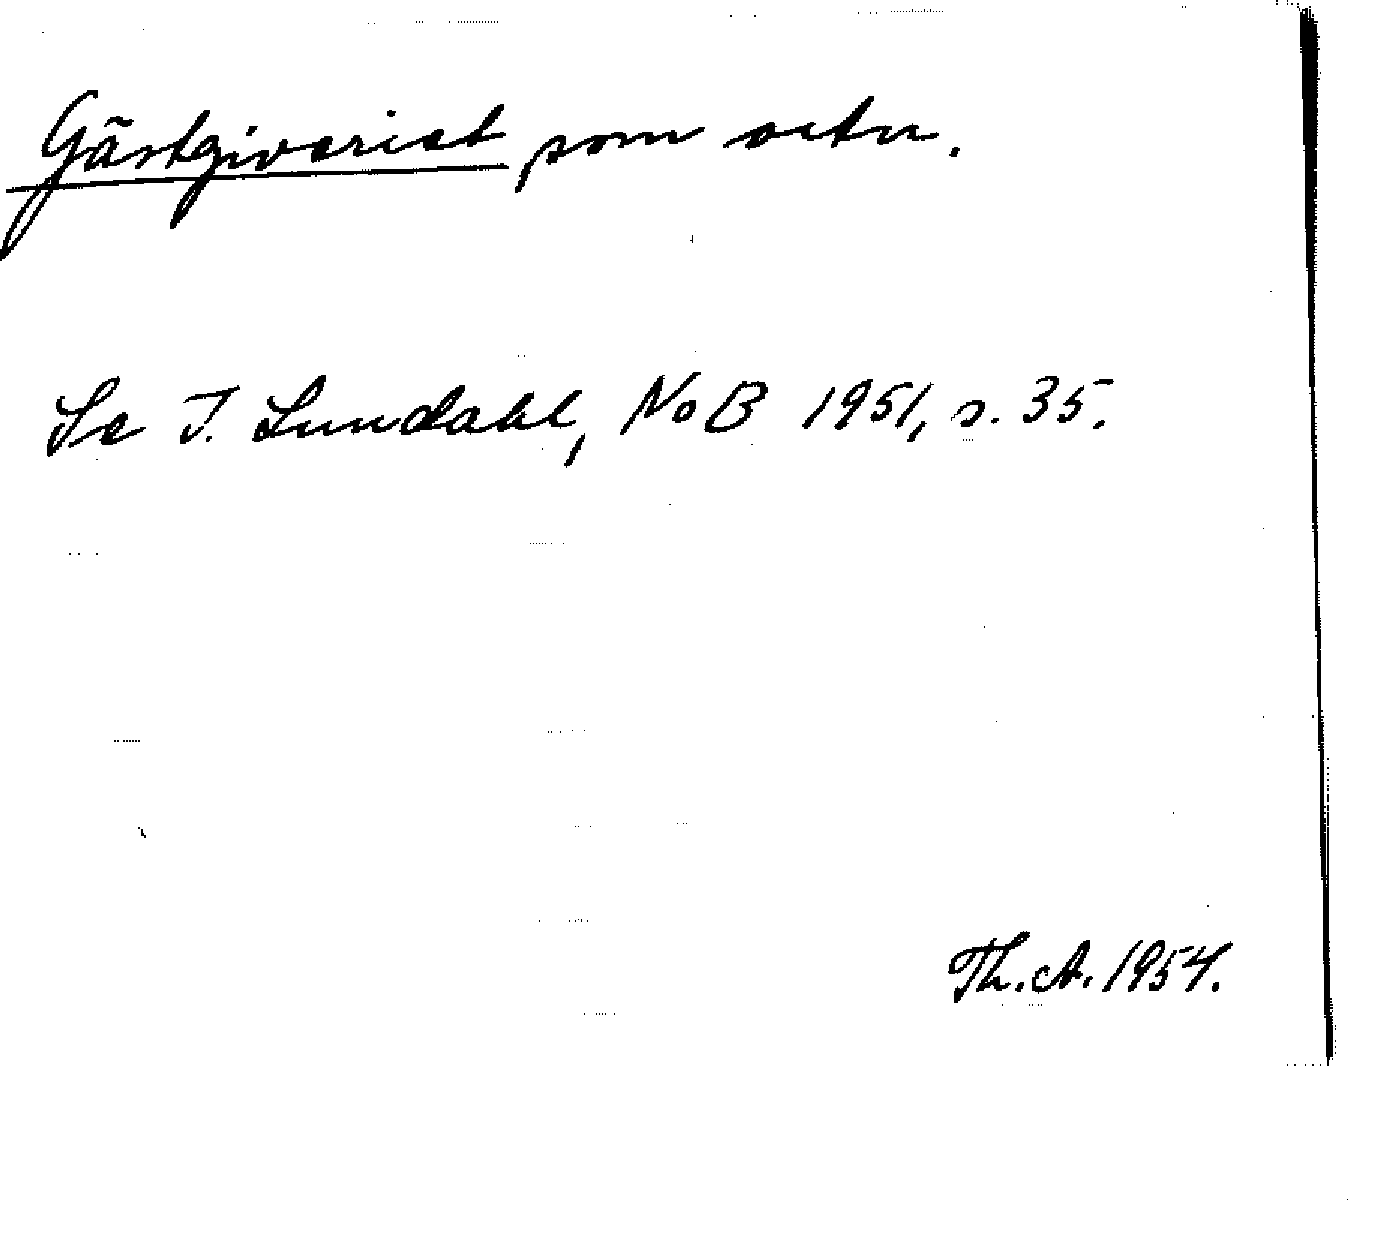 Gästgiveriet som ortn.
Se I. Lundahl, NoB 1951, s. 35.
Th. A. 1954.